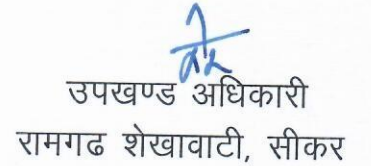 उपखण्ड अधिकारी
रामगढ शेखावाटी, सीकर